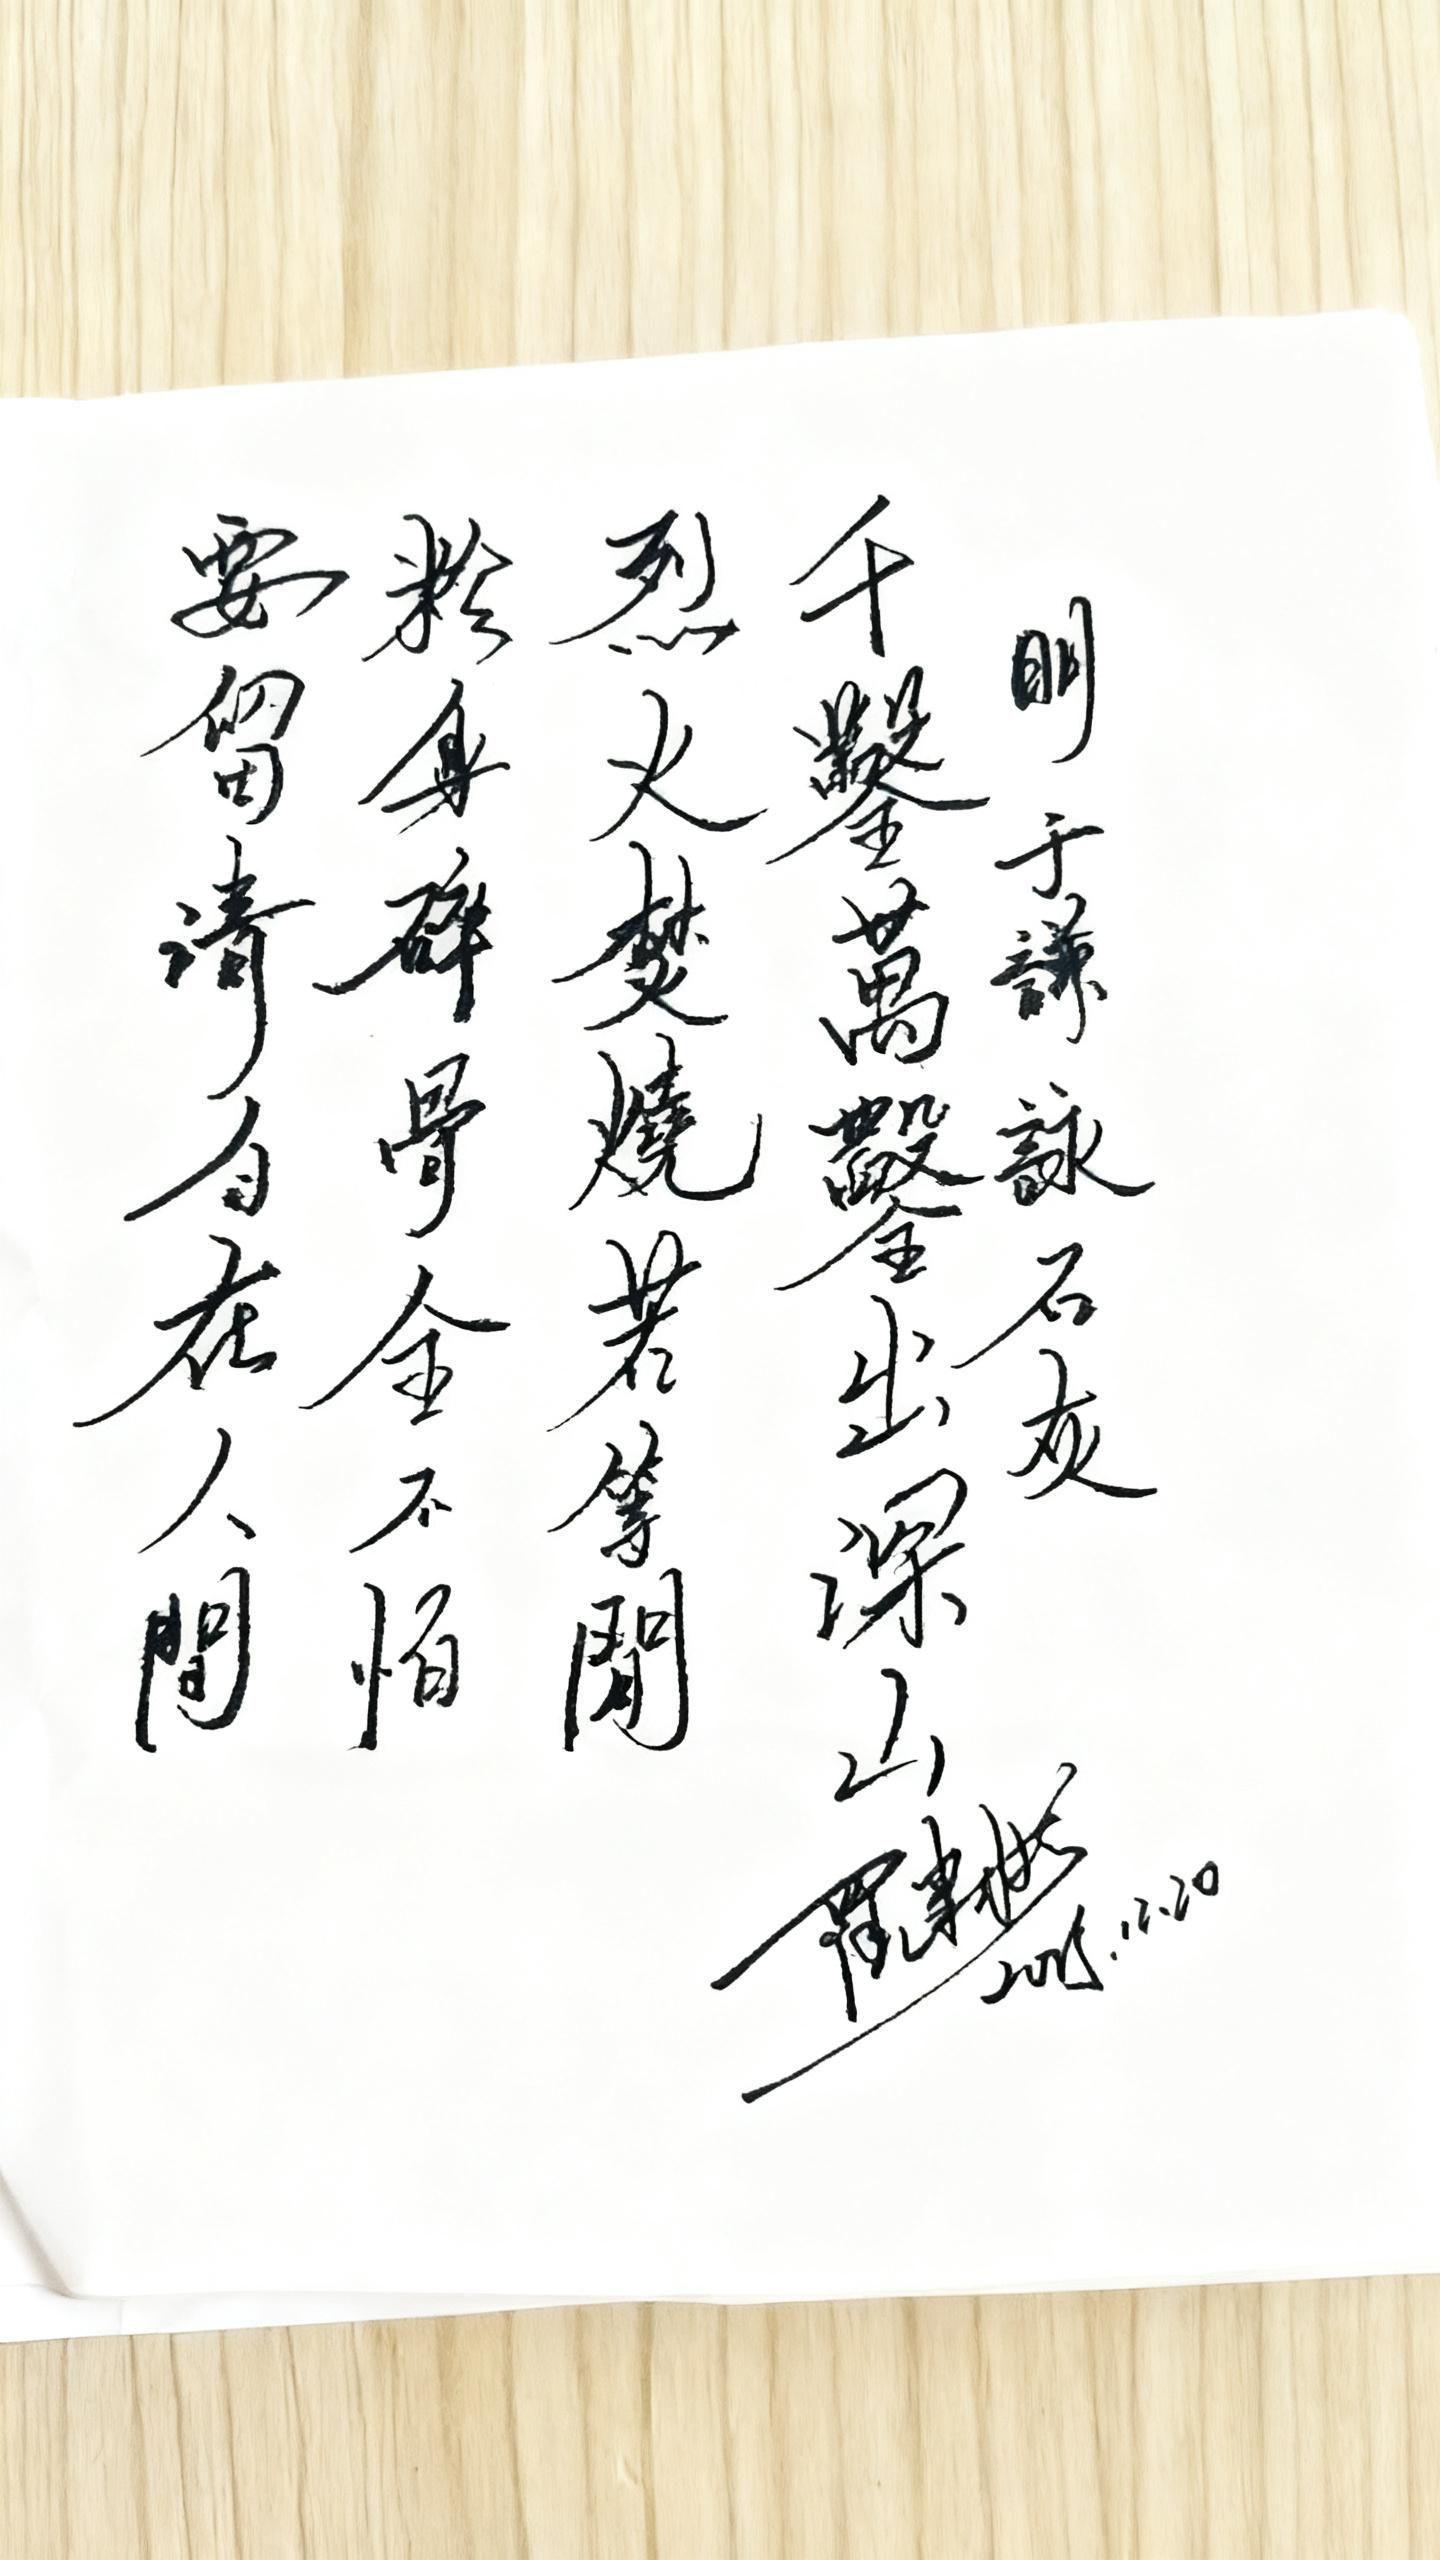 明 于謙 詠石灰
千鑿萬鑿出深山
烈火焚燒若等閒
粉身碎骨全不怕
要留清白在人間